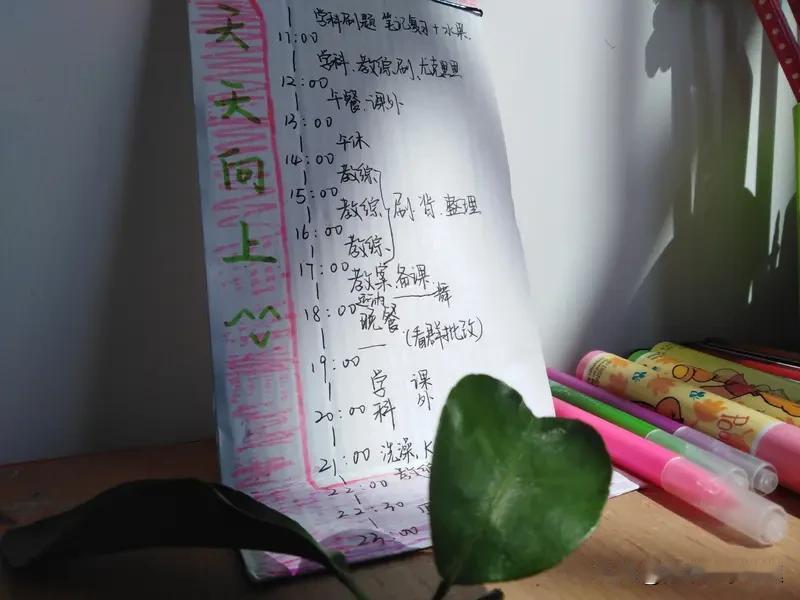 天天向上
学科刷题 笔记复习+水果
11:00
学科、教综刷、尤克里里
12:00
午餐、课外
13:00
午休
14:00
教综
15:00
教综 刷、背、整理
16:00
教综
17:00
教案、备课
室内——舞
18:00
晚餐
—— (看群批改)
19:00
学科 课外
20:00
21:00 洗澡、K
22:00 教综
22:30
23:00